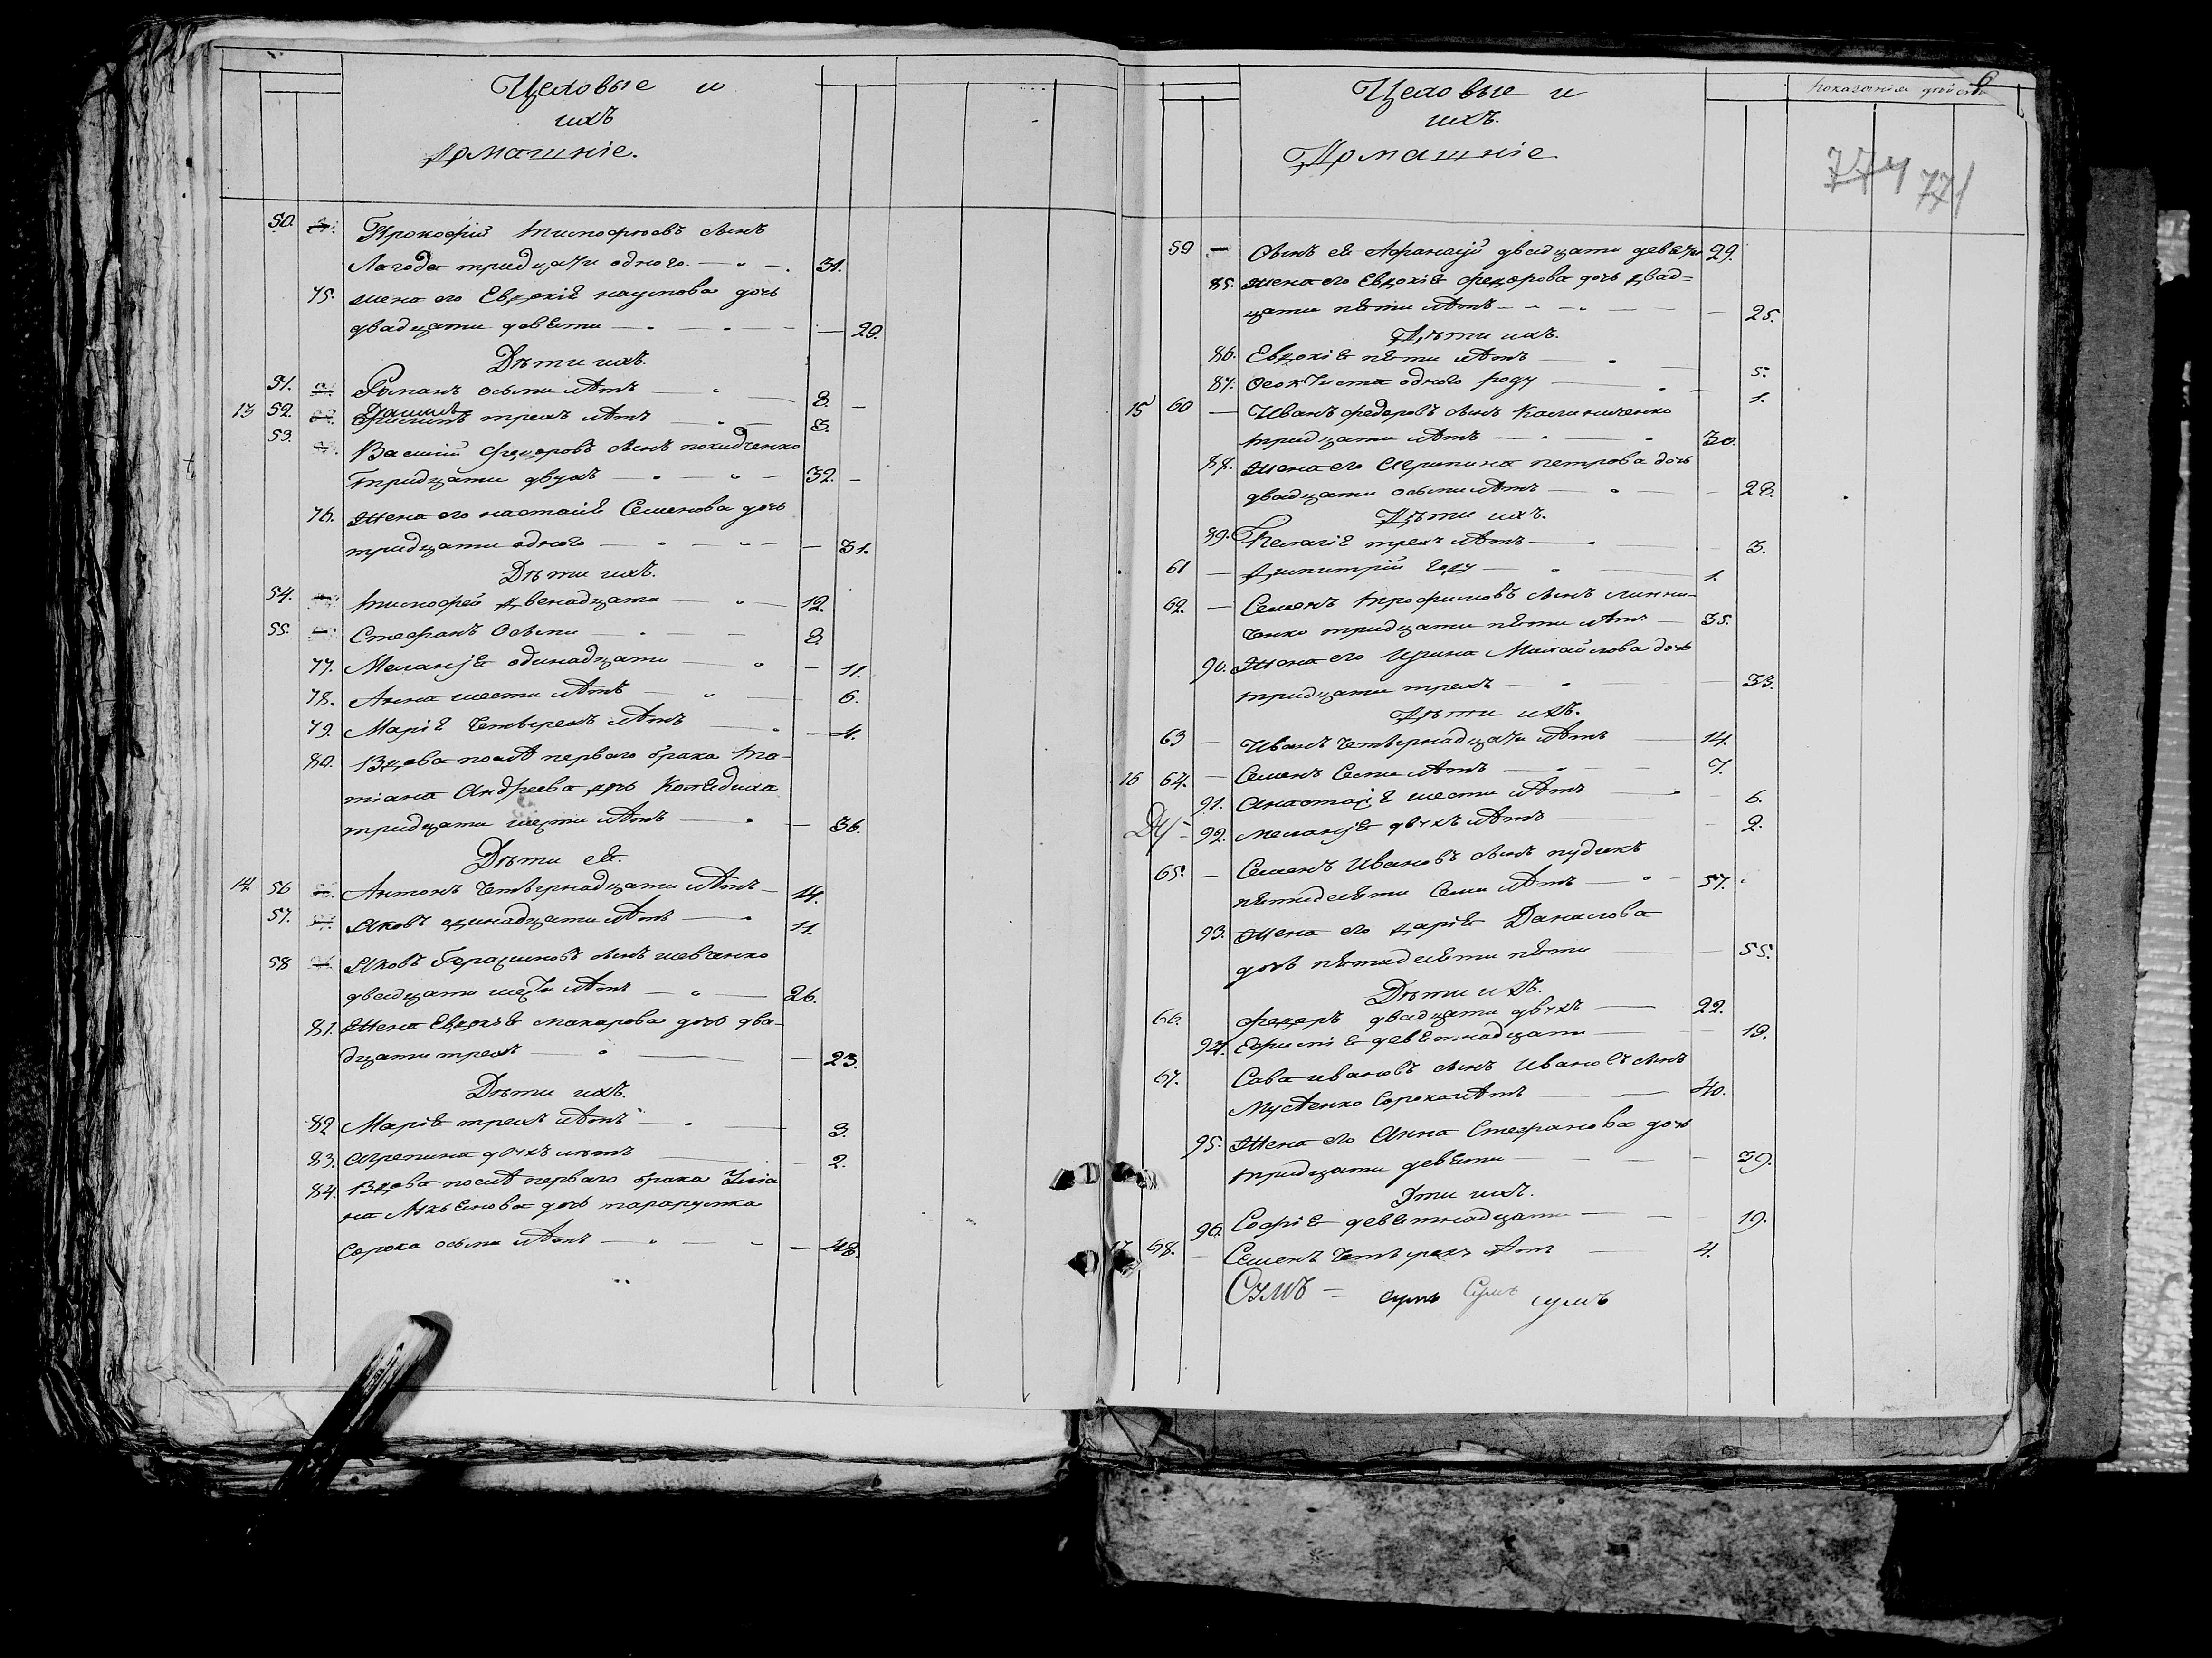 Цеховые и
ихъ
Домашніе.
50. Прокофій тимофеевъ сынъ
Лагода тридцати одного 31.
75. жена его Евдокія наумова дочь
двадцати девяти 29.
Дѣти ихъ.
51. Романъ осьми лѣтъ 8.
13 52. трехъ лѣтъ 3.
53. Василій Федоровъ сынъ
тридцати двухъ 32.
76. жена его настасія Семенова дочь
тридцати одного 31.
Дѣти ихъ.
54. тимофей двенадцати 12.
55. Стефанъ Осьми 8.
77. Меланія одинадцати 11.
78. Анна шести лѣтъ 6.
79. Марія Четырехъ лѣтъ 4.
80. Вдова послѣ перваго брака та-
тіана Андреева дочь
тридцати шести лѣтъ 36.
Дѣти ея.
14 56 Антонъ Четырнадцати лѣтъ 14.
57. Яковъ одинадцати лѣтъ 11.
58 Яковъ Герасимовъ сынъ шевченко
двадцати шести лѣтъ 26.
81. Жена Евдокія макарова дочь два-
дцати трехъ 23.
Дѣти ихъ.
82 Марія трехъ лѣтъ 3.
83. Агрепина двухъ лѣтъ 2.
84. Вдова послѣ перваго брака Улія
на дочь
Сорока осьми лѣтъ 48.
6
Показанія
Цеховые и
ихъ.
Домашніе.
774 771
59 Сынъ ея Афанасій двадцати девяти 29.
85. жена его Евдокія федорова дочь двад=
цати пяти лѣтъ 25.
Дѣти ихъ.
86. Евдокія пяти лѣтъ 5.
87. Феоктиста одного году 1.
15 60 Иванъ федоровъ сынъ Калиниченко
тридцати лѣтъ 30.
88. Жена его Агрипина петрова дочь
двадцати осьми лѣтъ 28.
Дѣти ихъ.
89. Пелагія трехъ лѣтъ 3.
61 Димитрій году 1.
62. Семенъ трофимовъ сынъ линни-
ченко тридцати пяти лѣтъ 35.
90. Жена его Ирина Михайлова дочь
тридцати трехъ 33.
Дѣти ихъ.
63 Иванъ Четырнадцати лѣтъ 14.
16 64. Семенъ Семи лѣтъ 7.
91. Анастасія шести лѣтъ 6.
92. меланія двухъ лѣтъ 2.
65. Семенъ Ивановъ сынъ
пятидесяти Семи лѣтъ 57.
93. Жена его дарія Данилова
дочь пятидесяти пяти 55.
Дѣти ихъ.
66. федоръ двадцати двухъ 22.
94. девятнадцати 19.
67. Сава ивановъ сынъ Ивановъ сынъ
Мусѣенко Сорока лѣтъ 40.
95. Жена его Анна Стефанова дочь
тридцати девяти 39.
Дти ихъ.
96. Софія девятнадцати 19.
17 68. Семенъ Четырехъ лѣтъ 4.
Сумъ = сумъ Сумъ сумъ